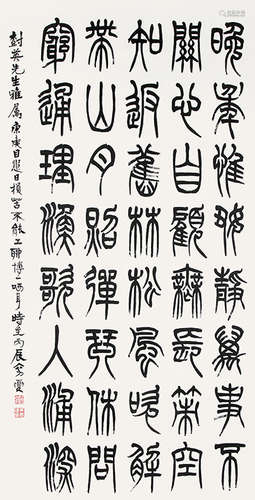 晚年惟好靜萬事不
關心自顧無長策空
知返舊林松風吹解
帶山月照彈琴休問
窮通理漁歌入浦深
英先生雅屬庚戌目日損苦不能工聊博一哂耳時丙辰